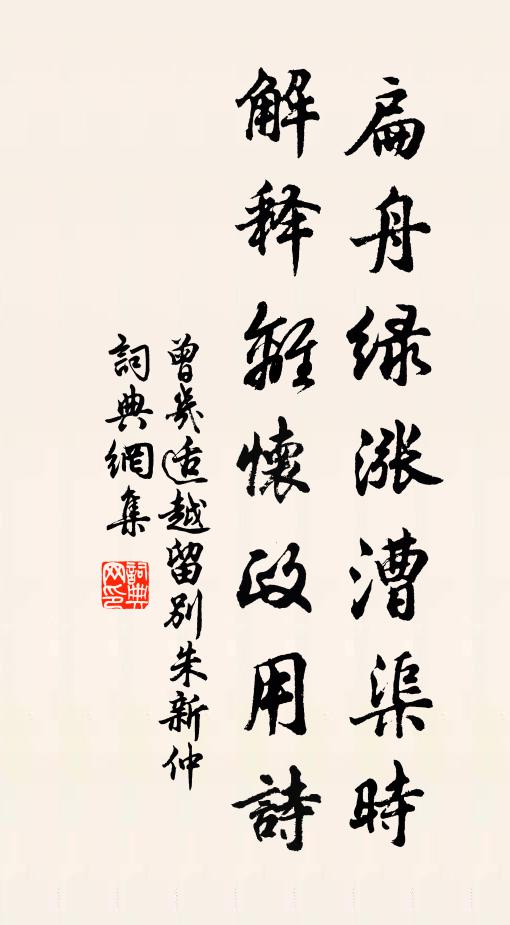 扁舟绿涨漕渠時
解释離懷政用詩
曾幾适越留别朱新仲
詞典網集
詞典网印